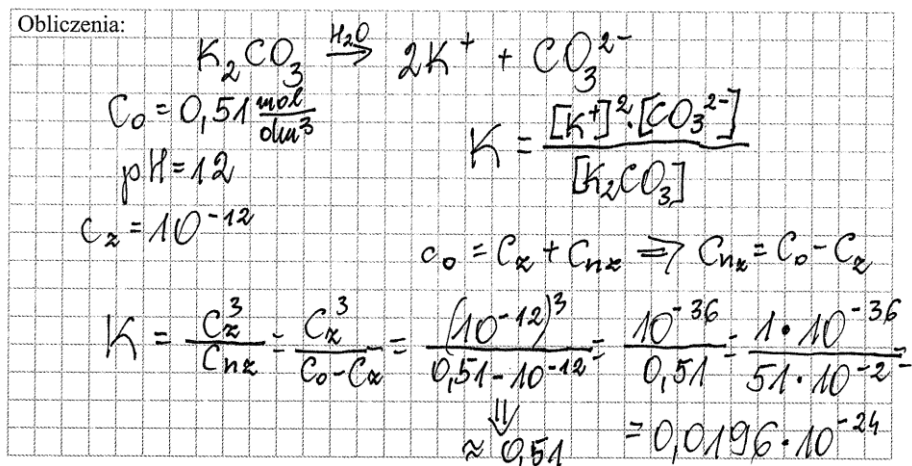 Obliczenia:
K₂CO₃ —H₂O→ 2K⁺ + CO₃²⁻
C₀ = 0,51 mol/dm³
K = [K⁺]²·[CO₃²⁻] / [K₂CO₃]
pH = 12
C_z = 10⁻¹²
c₀ = C_z + C_nz ⇒ C_nz = C₀ - C_z
K = C_z³/C_nz = C_z³/(C₀-C_z) = (10⁻¹²)³/(0,51-10⁻¹²) = 10⁻³⁶/0,51 = 1·10⁻³⁶/51·10⁻² =
⇓
≈ 0,51 = 0,0196·10⁻²⁴